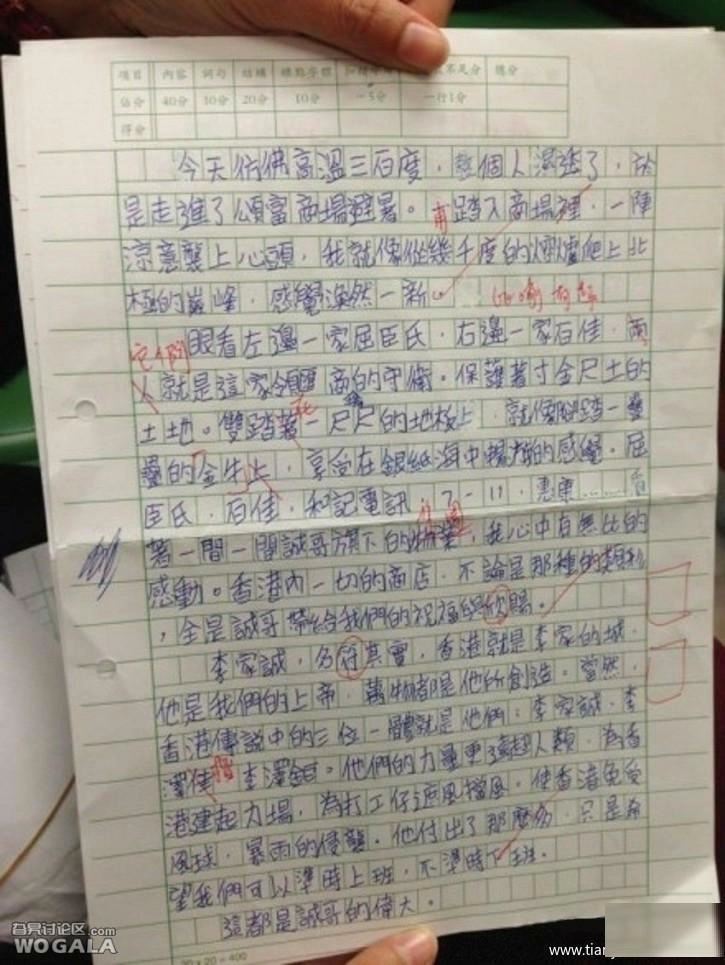 項目 內容 詞句 結構 標點字體 不足分 總分
佔分 40分 30分 20分 10分 -5分 一行1分
得分
今天仿佛高溫三百度,整個人濕透了,於
是走進了頌富商場避暑。甫踏入商場裡,一陣
涼意襲上心頭,我就像從幾千度的爬上北
極的巔峰,感覺渙然一新。
它們眼看左邊一家屈臣氏,右邊一家百佳,兩
人就是這家商的守衛。保護著寸金尺土的
土地。雙踏著一尺尺的地板上,就像腳踏一疊
疊的金牛上,享受在銀紙海中的感覺。屈
臣氏,百佳,和記電訊,7-11,惠康……看
著一間一間誠哥旗下的物業,我心中有無比的
感動。香港內一切的商店,不論是那種的類型
,全是誠哥帶給我們的祝福與欣賜。
李家誠,名符其實,香港就是李家的城,
他是我們的上帝,萬物都是他所創造。當然,
香港傳說中的三位一體就是他們:李家誠,李
澤佳楷,李澤鉅。他們的力量更遠超人類,為香
港建起力場,為打工仔遮風擋風,使香港免受
風球,暴雨的侵襲。他付出了那麼多,只是希
望我們可以準時上班,不準時下班。
這都是誠哥的偉大。
20 x 20 = 400
春晃讨论区.com
WOGALA
www.tianj